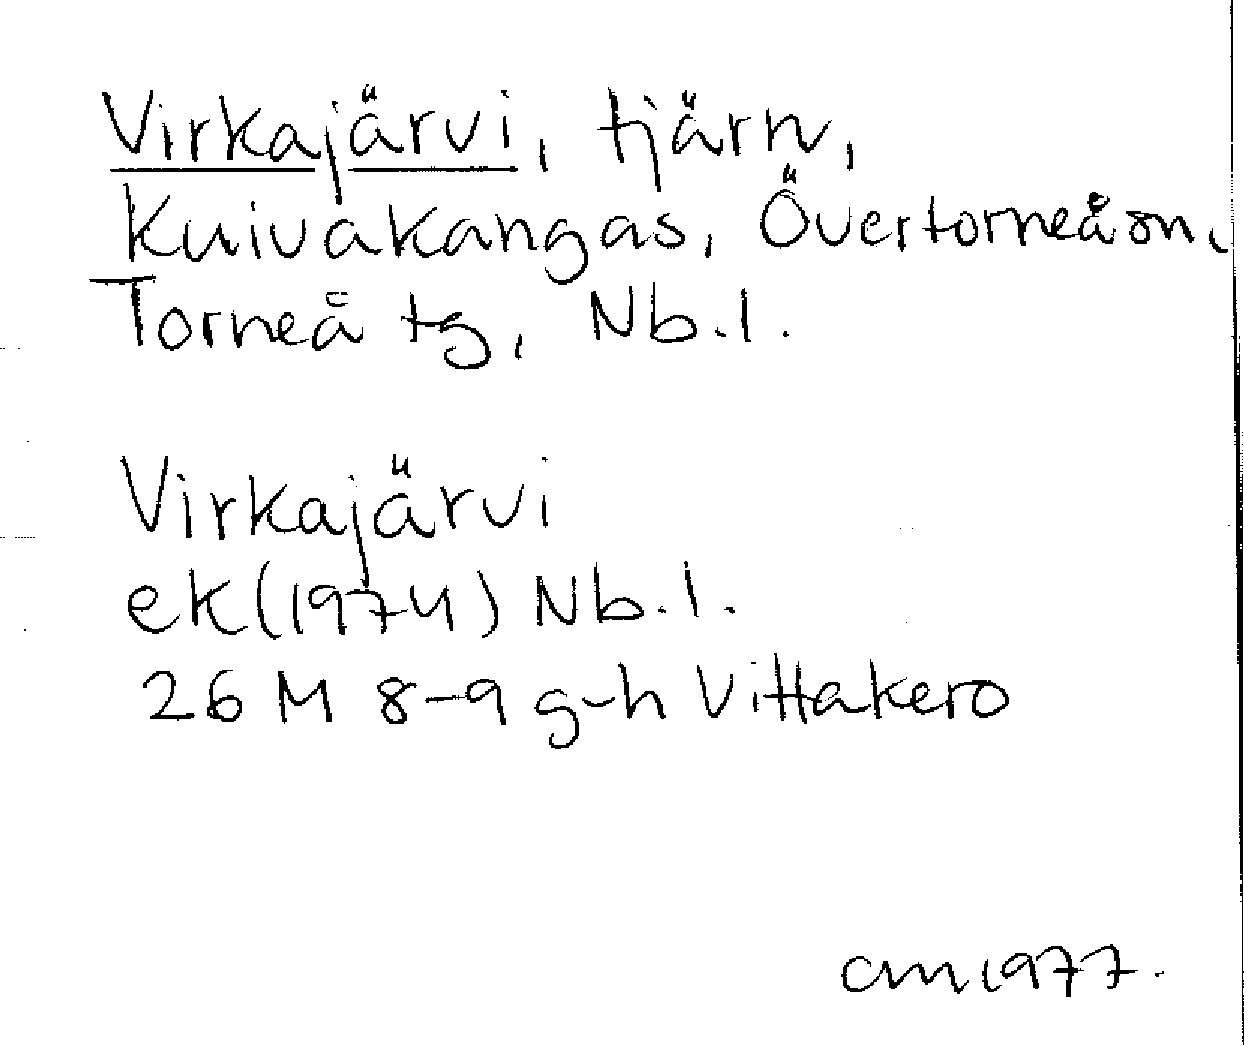 Virkajärvi, tjärn,
Kuivakangas, Övertorneå sn,
Torneå tg, Nb.l.
Virkajärvi
ek(1974) Nb.l.
26 M 8-9 g-h Vittakero
cm 1977.